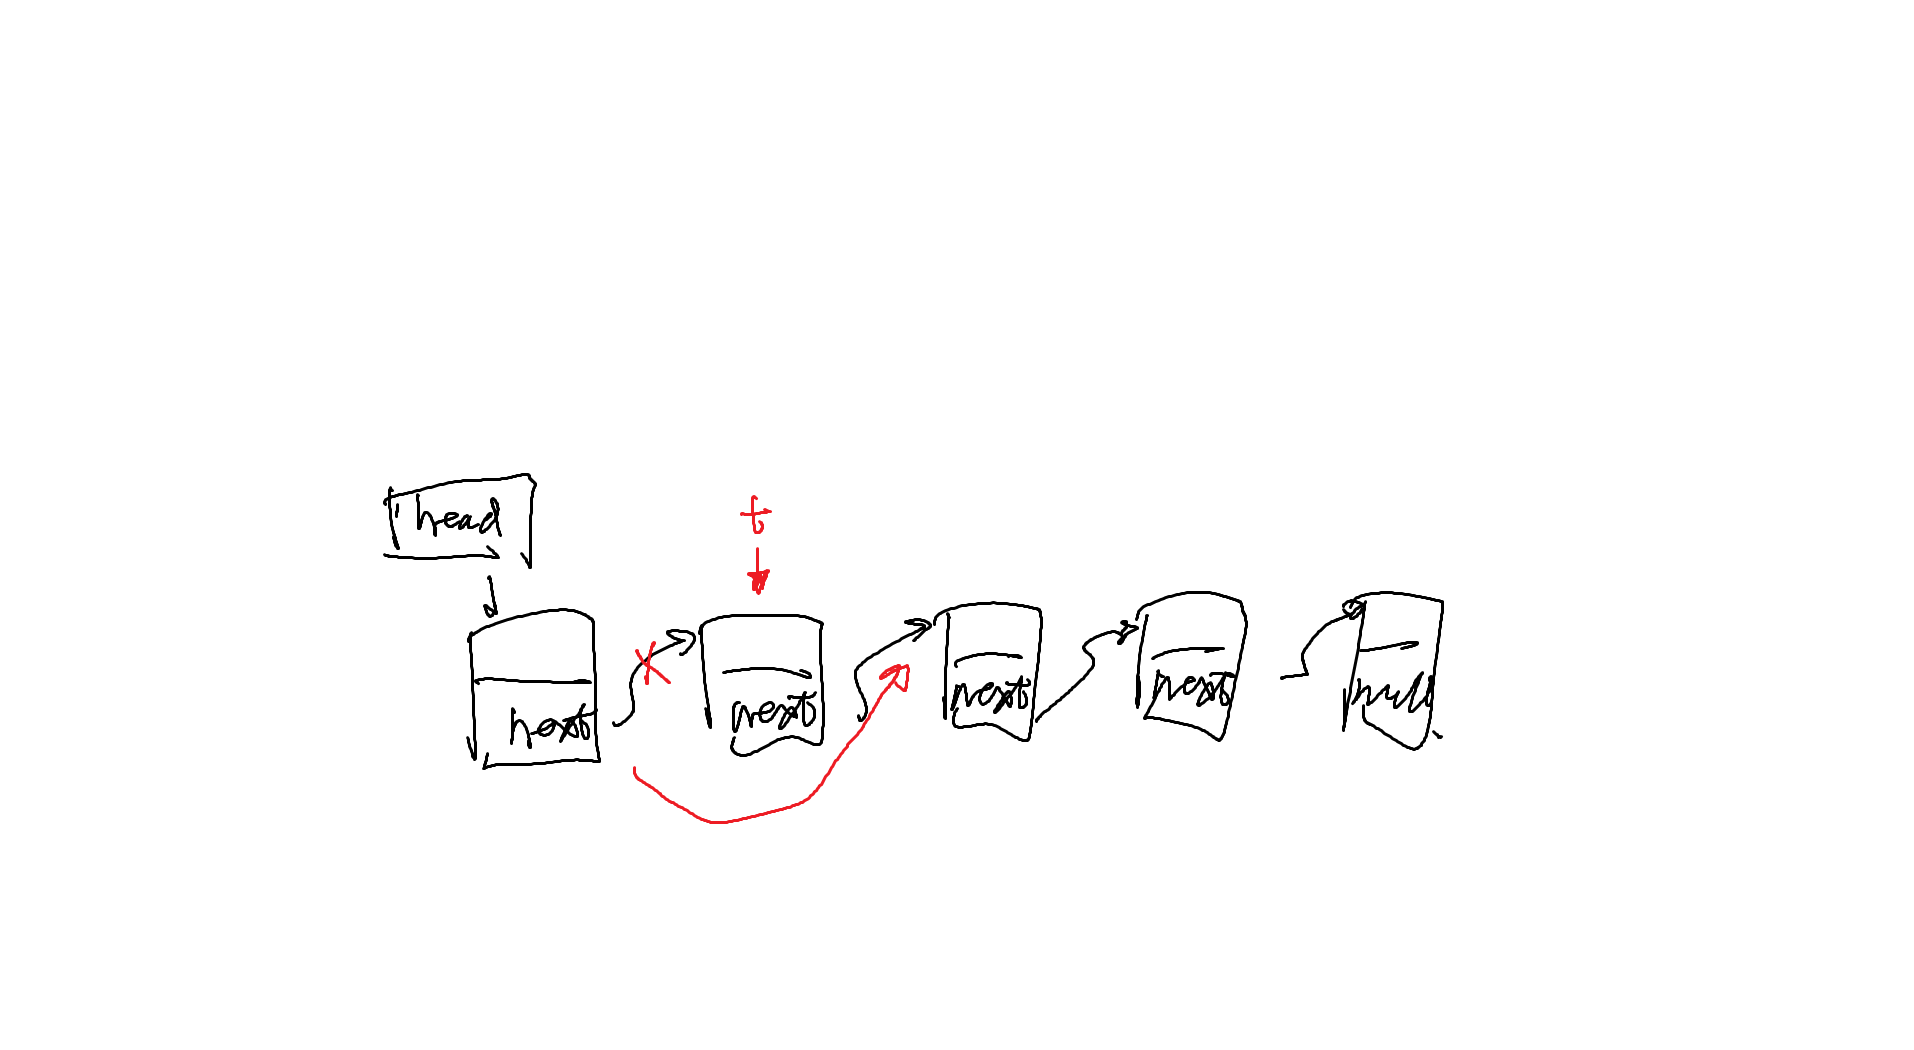 head
t
next
next
next
next
null